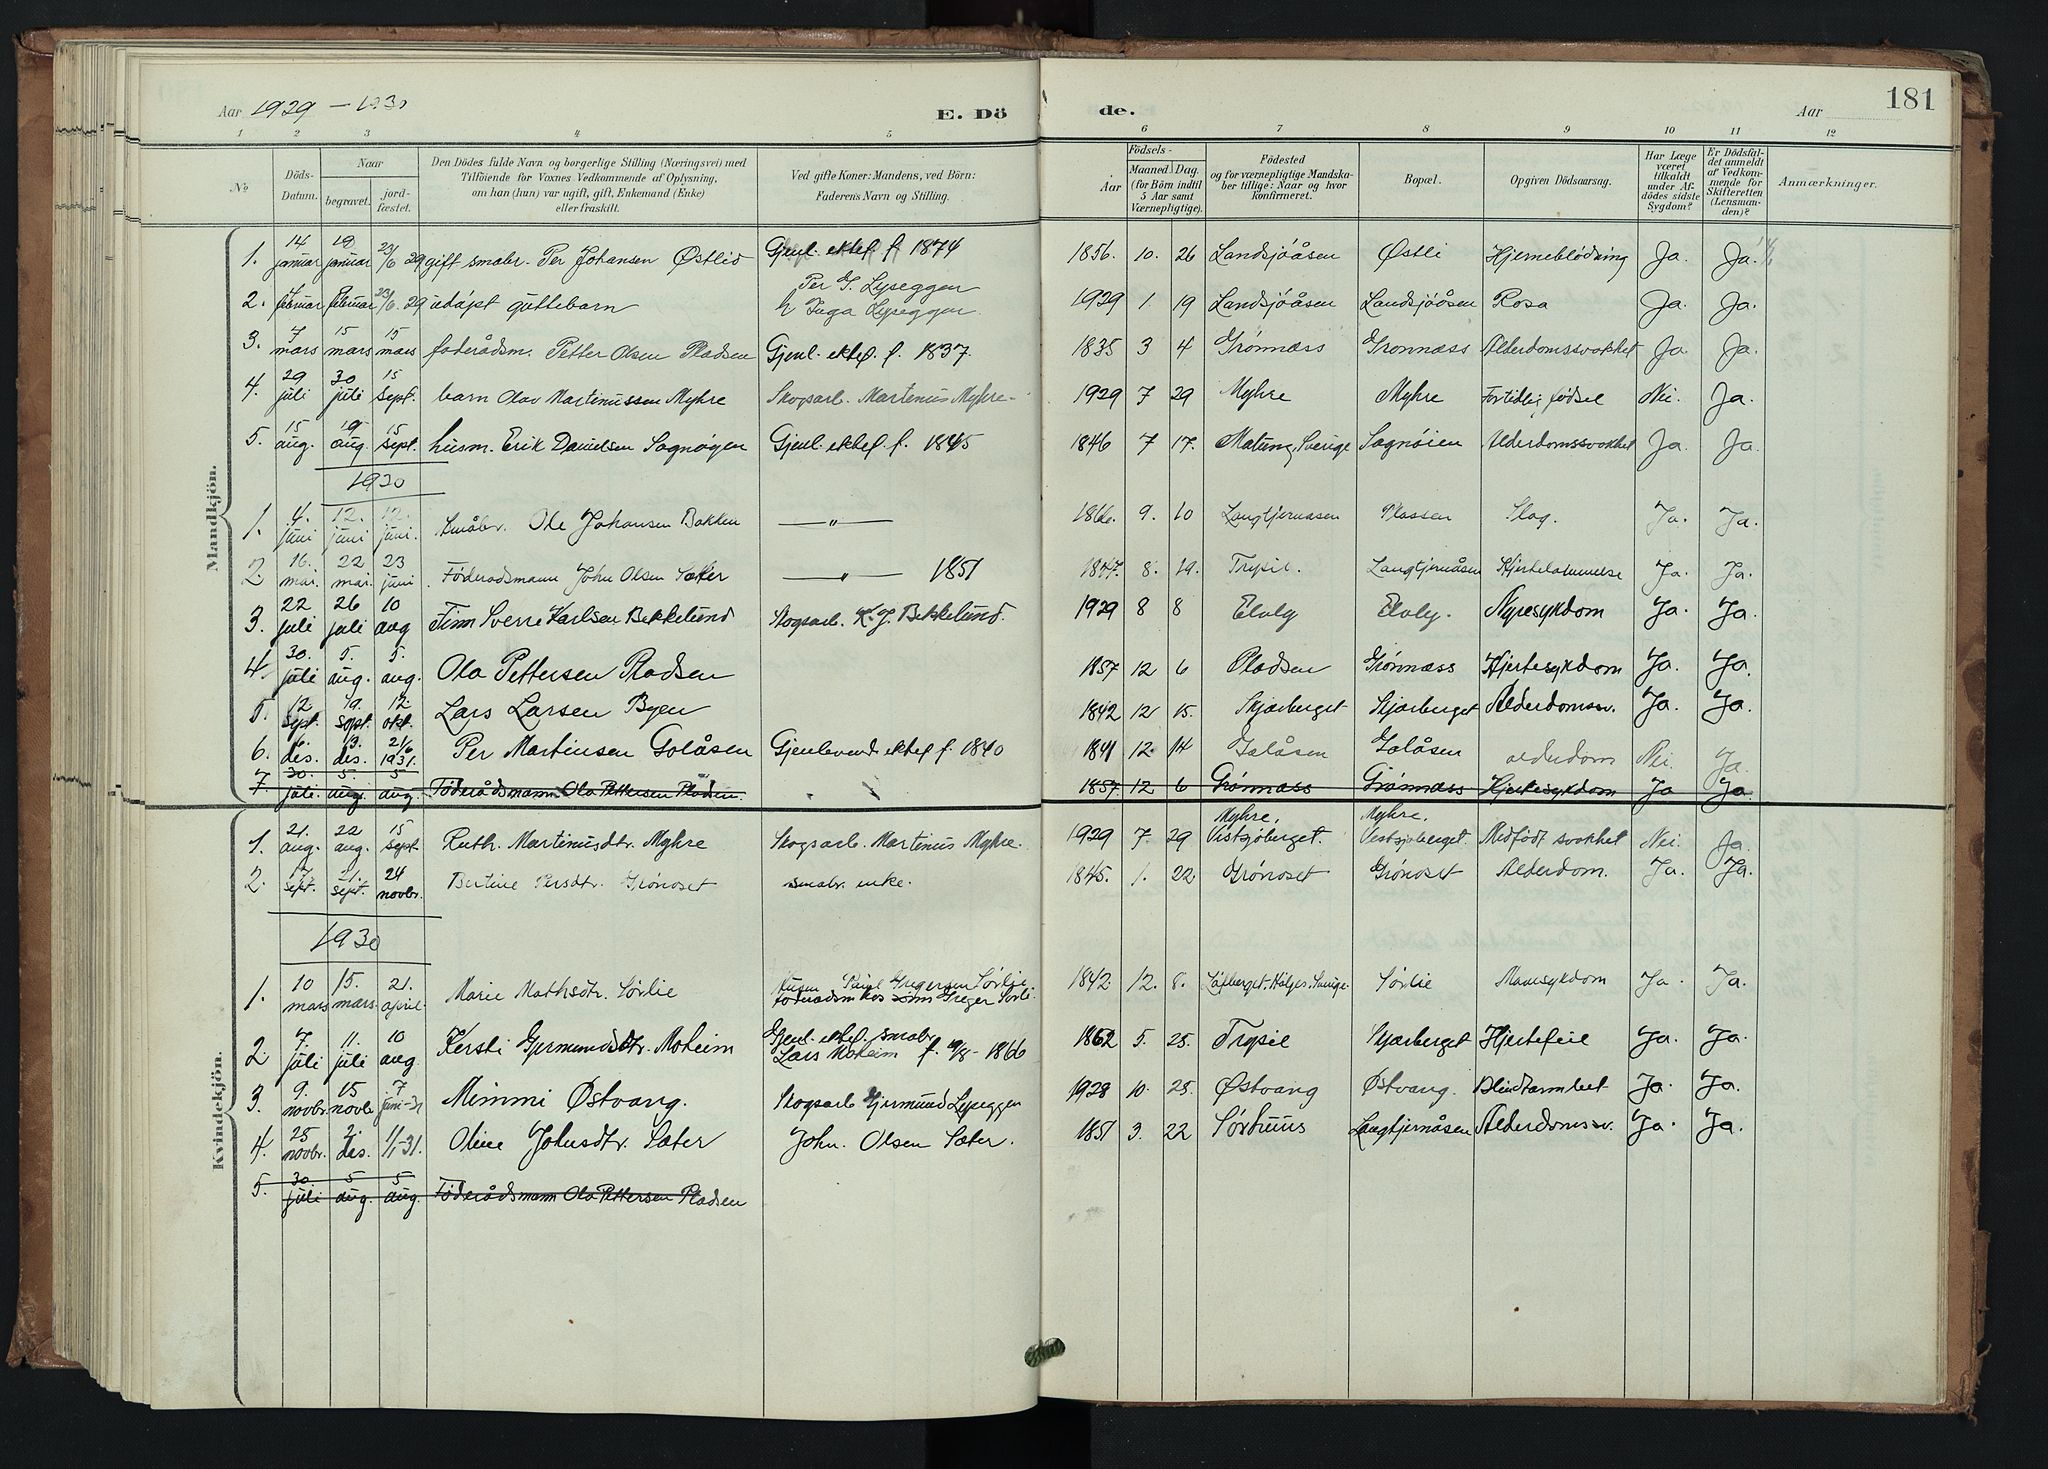 Aar 1929 – 1930
E. Dö de.
Aar
181
1 2 3 4 5 6 7 8 9 10 11 12
No
Döds-Datum.
Naar
begravet.
jord-fæstet.
Den Dödes fulde Navn og borgerlige Stilling (Næringsvei) med
Tilföiende for Voxnes Vedkommende af Oplysning,
om han (hun) var ugift, gift, Enkemand (Enke)
eller fraskilt.
Ved gifte Koner: Mandens, ved Börn:
Faderens Navn og Stilling.
Födsels-
Aar
Maaned. Dag.
(for Börn indtil
5 Aar samt
Værnepligtige).
Födested
og for værnepligtige Mandska-
ber tillige: Naar og hvor
konfirmeret.
Bopæl.
Opgiven Dödsaarsag.
Har Læge
været
tilkaldt
under Af-
dödes sidste
Sygdom?
Er Dödsfal-
det anmeldt
af Vedkom-
mende for
Skifteretten
(Lensman-
den)?
Anmærkninger.
Mandkjön.
1. 14 januar 19 januar 23/6 29 gift smabr. Per Johansen Østlid Gjenl. ektef. f. 1874 1856. 10. 26 Landsjöåsen Østli Hjerneblödning Ja. Ja.
2. februar februar 23/6 29 udöpt guttebarn Per G. Lyseggen h Inga Lyseggen. 1929 1. 19 Landsjöåsen Landsjöåsen Rosa Ja. Ja.
3. 7 mars 15 mars 15 mars foderådsm. Petter Olsen Pladsen Gjenl. ektef. f. 1837. 1835 3 4 Grønnæss Grønnæss Alderdomssvakhet Ja Ja.
4. 29 juli 30 juli 15 sept. barn Olav Martinussen Myhre Skogsarb. Martinus Myhre. 1929 7 29 Myhre Myhre Fortidlig fødsel Nei. Ja.
5. 15 aug. 19 aug. 15 sept. husm. Erik Danielsen Sagnøyen Gjenl. ektef. f. 1845 1846 7 17. Matung, Sverige Sagnöien Alderdomssvakhet Ja Ja.
1930
1. 4. juni 12. juni 12. juni. Småbr. Ole Johansen Bakken — " — 1866. 9. 10 Langtjernaasen Plassen Slag. Ja. Ja.
2 16. mai. 22 mai. 23 juni Föderadsmann John Olsen Sæter — " — 1851 1847. 8. 19. Trysil. Langtjernåsen Hjertelammelse Ja. Ja.
3. 22 juli 26 juli 10 aug Finn Sverre Karlsen Bekkelund Skogsarb. K. J. Bekkelund. 1929 8 8 Elvly Elvly. Nyresykdom Ja. Ja.
4. 30. juli 5. aug. 5. aug. Ola Pettersen Pladsen 1857 12 6 Pladsen Grønnæss Hjertesykdom Ja. Ja.
5. 12 sept. 19. sept. 12. okt. Lars Larsen Byen 1842 12 15. Skjærberget Skjærberget Alderdomssv. Ja. Ja.
6. 6. des. 13. des. 21/6 1931. Per Martinsen Golåsen Gjenlevende ektef f. 1840 1841 12. 14 Galåsen Galåsen alderdom Nei. Ja.
7. 30. juli. 5. aug. 5 aug. Föderådsmann Ola Pettersen Pladsen. 1857. 12 6 Grønnæss Grønnæss Hjertesykdom Ja Ja.
Kvindekjön.
1. 21. aug. 22 aug. 15 sept. Ruth. Martinusdtr. Myhre Skogsarb. Martinus Myhre. 1929 7. 29 Myhre, Vestsjöberget. Myhre, Vestsjöberget. Medfödt svakhet Nei. Ja.
2. 17. sept. 21. sept 24 novbr. Bertine Persdtr. Grönoset smabr. enke. 1845. 1. 22 Grønoset Grönoset Alderdom. Ja. Ja.
1930
1. 10 mars 15. mars 21. april Marie Mathsdtr. Sörlie Gregersen Sörlie. föderadsm hos Greger Sörli 1842 12. 8. Höljes. Sverige. Sörlie Mavesykdom Ja. Ja.
2 7. juli 11. juli 10 aug. Kersti Gjermundsdtr. Moheim Gjenl. ektef. smabr. Lars Moheim f. 9/8 - 1866 1862 5. 25. Trysil Skjærberget Hjertefeil Ja. Ja.
3. 9. novbr. 15 novbr 7 juni-31 Mimmi Østvang. Skogsarb Gjermund Lyseggen 1928 10. 25. Østvang Østvang. Blindtarmbet. Ja. Ja.
4. 25 novbr. 2. des. 1/1-31. Oline Johnsdtr. Sæter John. Olsen Sæter. 1851 3. 22 Sörhuus Langtjernåsen Alderdomssv. Ja. Ja.
5. 30. juli 5 aug. 5 aug. Föderådsmann Ola Pettersen Pladsen